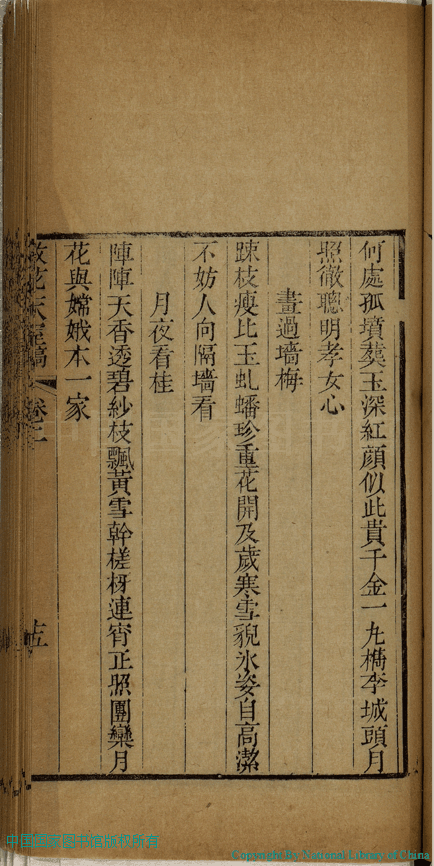 何處孤墳葬玉深紅顏似此貴千金一九檇李城頭月
照徹聰明孝女心
畫過墻梅
踈枝瘦比玉虬蟠珍重花開及歲寒雪貌氷姿自高潔
不妨人向隔墻看
月夜看桂
陣陣天香透碧紗枝飄黃雪幹槎枒連宵正照團欒月
花與嫦娥本一家
花天 稿 卷二
十五
中国国家图书馆版权所有
Copyright By National Library of China